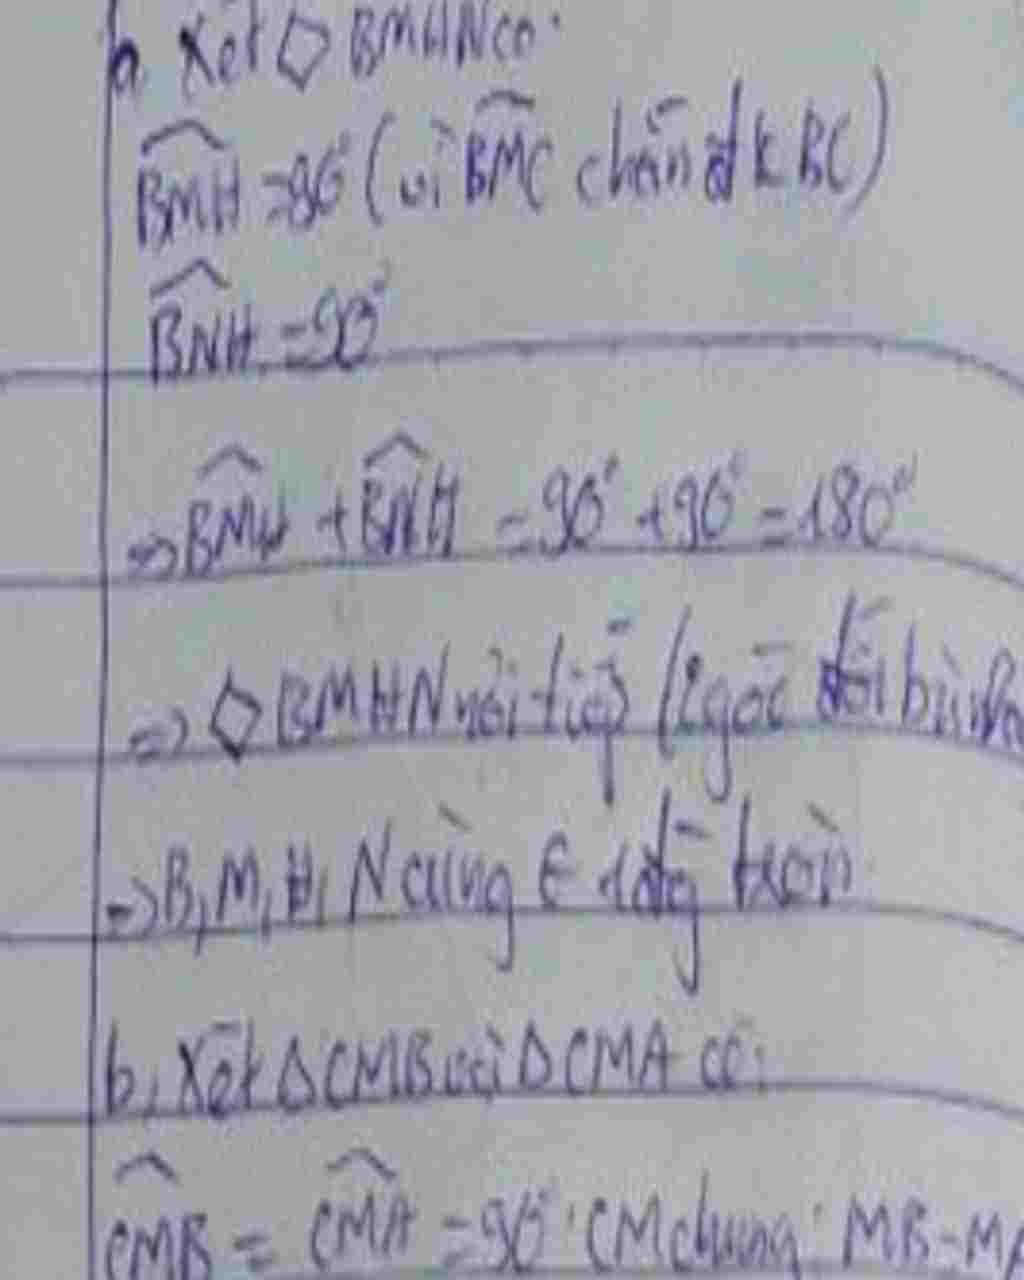 a, Xét ◇ BMHN có:
$\widehat{BMH}$ = 90° (vì $\widehat{BMC}$ chắn đk BC)
$\widehat{BNH}$ = 90°
=> $\widehat{BMH}$ + $\widehat{BNH}$ = 90° + 90° = 180°
=> ◇ BMHN nội tiếp (2 góc đối bù nh
=> B, M, H, N cùng ∈ đtg tròn
b, Xét Δ CMB và Δ CMA có:
$\widehat{CMB}$ = $\widehat{CMA}$ = 90°; CM chung; MB = MA